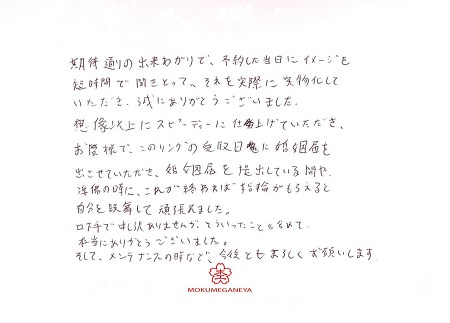 期待通りの出来あがりで、予約した当日にイメージを
短時間で聞きとって、それを実際に実物化して
いただき、誠にありがとうございました。
想像以上にスピーディーに仕上げていただき、
お陰様で、このリングの受取日に婚姻届を
出させていただき、婚姻届を提出している間や、
準備の時に、これが終われば指輪がもらえると
自分を鼓舞して頑張れました。
口下手で申し訳ありませんが、そういったことも含めて、
本当にありがとうございました。
そして、メンテナンスの時など、今後ともよろしくお願いします
MOKUMEGANEYA